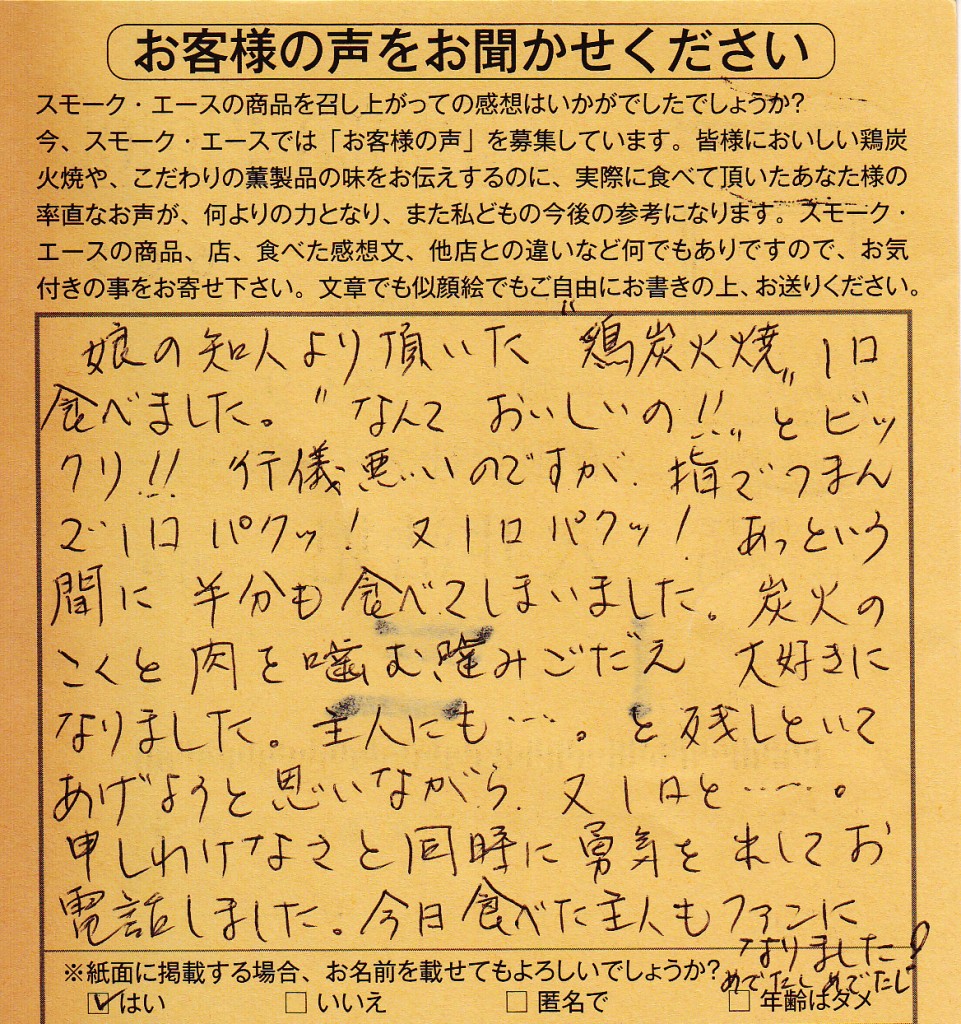 お客様の声をお聞かせください
スモーク・エースの商品を召し上がっての感想はいかがでしたでしょうか?
今、スモーク・エースでは「お客様の声」を募集しています。皆様においしい鶏炭
火焼や、こだわりの薫製品の味をお伝えするのに、実際に食べて頂いたあなた様の
率直なお声が、何よりの力となり、また私どもの今後の参考になります。スモーク・
エースの商品、店、食べた感想文、他店との違いなど何でもありですので、お気
付きの事をお寄せ下さい。文章でも似顔絵でもご自由にお書きの上、お送りください。
娘の知人より頂いた "鶏炭火焼" 1口
食べました。"なんて おいしいの!!" と ビッ
クリ!! 行儀悪いのですが、指でつまん
で1口 パクッ! 又1口パクッ! あっという
間に 半分も 食べてしまいました。炭火の
こくと 肉を 噛む噛みごだえ 大好きに
なりました。主人にも……。と残しといて
あげようと思いながら、又1口と……。
申しわけなさと同時に勇気を出してお
電話しました。今日食べた主人もファンに
なりました!
めでたし めでたし
※紙面に掲載する場合、お名前を載せてもよろしいでしょうか?
☑はい □いいえ □匿名で □年齢はダメ